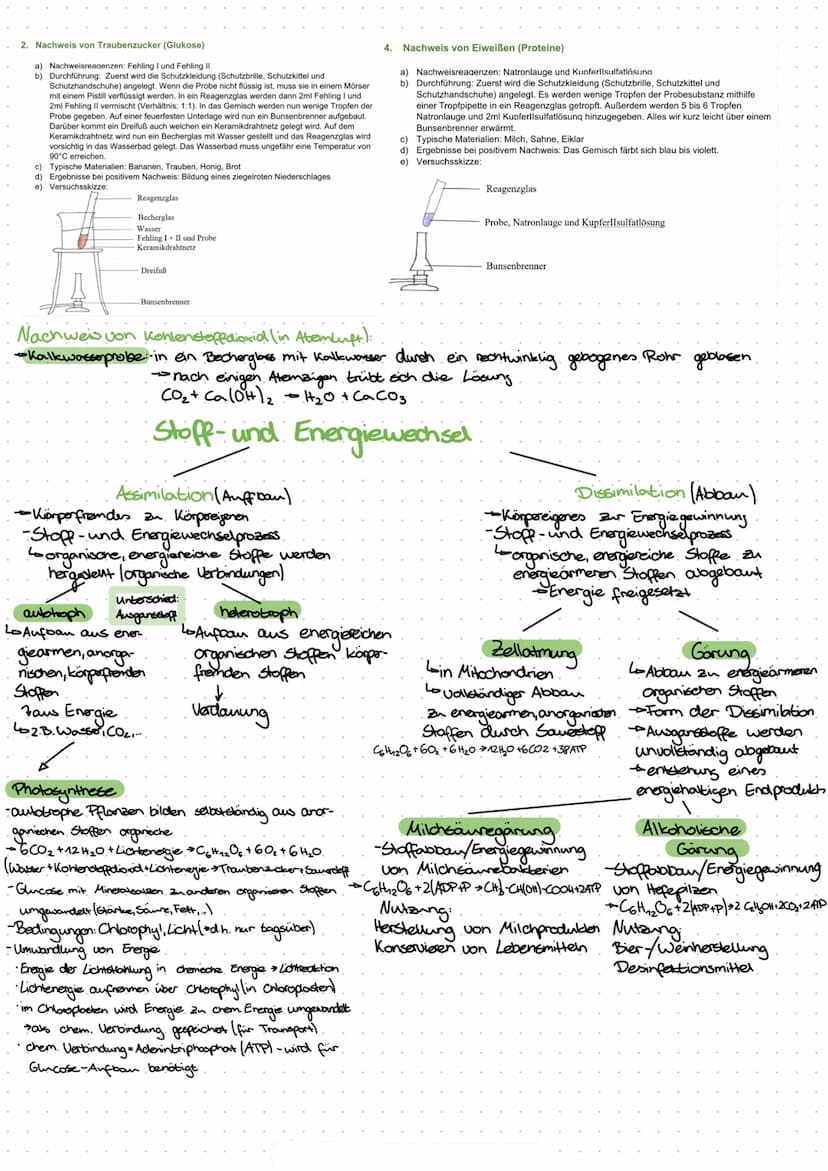 2. Nachweis von Traubenzucker (Glukose)
a) Nachweisreagenzen: Fehling I und Fehling II
b) Durchführung: Zuerst wird die Schutzkleidung (Schutzbrille, Schutzkittel und
Schutzhandschuhe) angelegt. Wenn die Probe nicht flüssig ist, muss sie in einem Mörser
mit einem Pistill verflüssigt werden. In ein Reagenzglas werden dann 2ml Fehling I und
2ml Fehling II vermischt (Verhältnis: 1:1). In das Gemisch werden nun wenige Tropfen der
Probe gegeben. Auf einer feuerfesten Unterlage wird nun ein Bunsenbrenner aufgebaut.
Darüber kommt ein Dreifuß auch welchen ein Keramikdrahtnetz gelegt wird. Auf dem
Keramikdrahtnetz wird nun ein Becherglas mit Wasser gestellt und das Reagenzglas wird
vorsichtig in das Wasserbad gelegt. Das Wasserbad muss ungefähr eine Temperatur von
90°C erreichen.
c) Typische Materialien: Bananen, Trauben, Honig, Brot
d) Ergebnisse bei positivem Nachweis: Bildung eines ziegelroten Niederschlages
e) Versuchsskizze:
Reagenzglas
Becherglas
Wasser
Fehling I + II und Probe
Keramikdrahtnetz
Dreifuß
Bunsenbrenner
4. Nachweis von Eiweißen (Proteine)
a) Nachweisreagenzen: Natronlauge und KupferIIsulfatlösung
b) Durchführung: Zuerst wird die Schutzkleidung (Schutzbrille, Schutzkittel und
Schutzhandschuhe) angelegt. Es werden wenige Tropfen der Probesubstanz mithilfe
einer Tropfpipette in ein Reagenzglas getropft. Außerdem werden 5 bis 6 Tropfen
Natronlauge und 2ml KupferIIsulfatlösung hinzugegeben. Alles wir kurz leicht über einem
Bunsenbrenner erwärmt.
c) Typische Materialien: Milch, Sahne, Eiklar
d) Ergebnisse bei positivem Nachweis: Das Gemisch färbt sich blau bis violett.
e) Versuchsskizze:
Reagenzglas
Probe, Natronlauge und KupferIIsulfatlösung
Bunsenbrenner
Nachweis von Kohlenstoffdioxid (in Atemluft):
→Kalkwasserprobe: in ein Becherglas mit Kalkwasser durch ein rechtwinklig gebogenes Rohr geblasen
→nach einigen Atemzügen trübt sich die Lösung
CO₂ + Ca(OH)₂ → H₂O + CaCO₃
Stoff- und Energiewechsel
Assimilation (Aufbau)
→Körperfremdes zu Körpereigenen
-Stoff- und Energiewechselprozess
↳organische, energiereiche Stoffe werden
hergestellt (organische Verbindungen)
autotroph
Unterschied:
Ausgangsstoff
heterotroph
↳Aufbau aus ener-
giearmen, anorga-
nischen, körperfremden
Stoffen
aus Energie
↳z.B. Wasser, CO₂,...
↳Aufbau aus energiereichen
organischen Stoffen körper-
fremden Stoffen
↓
Verdauung
Photosynthese
-autotrophe Pflanzen bilden selbstständig aus anor-
ganischen Stoffen organische
→6CO₂ + 12H₂O + Lichtenergie → C₆H₁₂O₆ + 6O₂ + 6H₂O
(Wasser + Kohlenstoffdioxid + Lichtenergie → Traubenzucker + Sauerstoff
-Glucose mit Mineralsalzen zu anderen organischen Stoffen
umgewandelt (Stärke, Säure, Fett,..)
-Bedingungen: Chlorophyl, Licht (→d.h. nur tagsüber)
-Umwandlung von Energie
·Energie der Lichtstrahlung in chemische Energie → Lichtreaktion
·Lichtenergie aufnehmen über Chlorophyl (in Chloroplasten)
·im Chloroplasten wird Energie zu chem. Energie umgewandelt
→als chem. Verbindung gespeichert (für Transport)
· chem. Verbindung = Adenintriphosphat (ATP) - wird für
Glucose-Aufbau benötigt
Dissimilation (Abbau)
→Körpereigenes zur Energiegewinnung
-Stoff- und Energiewechselprozess
↳organische, energiereiche Stoffe zu
energieärmeren Stoffen abgebaut
→Energie freigesetzt
Zellatmung
↳in Mitochondrien
↳vollständiger Abbau
zu energiearmen, anorganischen
Stoffen durch Sauerstoff
C₆H₁₂O₆ + 6O₂ + 6H₂O → 12H₂O + 6CO2 + 38ATP
Gärung
↳Abbau zu energieärmeren
organischen Stoffen
→Form der Dissimilation
→Ausgangsstoffe werden
unvollständig abgebaut
→entstehung eines
energiehaltigen Endprodukts
Milchsäuregärung
-Stoffabbau/Energiegewinnung
von Milchsäurebakterien
→C₆H₁₂O₆ + 2(ADP+P → CH₃-CH(OH)-COOH + 2ATP
Nutzung:
Herstellung von Milchprodukten
Konservieren von Lebensmitteln
Alkoholische
Gärung
-Stoffabbau/Energiegewinnung
von Hefepilzen
→C₆H₁₂O₆ + 2(ADP+P) → 2 C₂H₅OH + 2CO₂ + 2ATP
Nutzung:
Bier-/Weinherstellung
Desinfektionsmittel